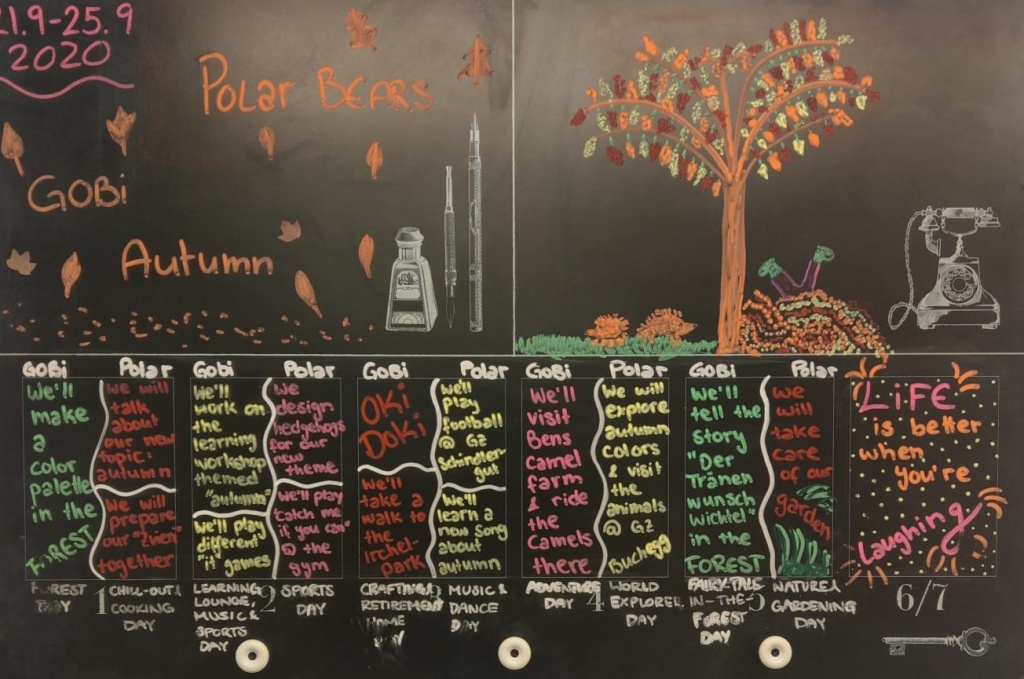 21.9-25.9
2020
Polar BEARS
GOBi
Autumn
GOBi
We'll
make
a
color
palette
in the
FOREST
FOREST
DAY
1
Polar
we will
talk
about
our new
topic:
autumn
We will
prepare
our "Znen"
together
CHILL-OUT &
COOKING
DAY
GOBi
We'll
work on
the
learning
workshop
themed
"autumn"
We'll play
different
"it" games
LEARNING
LOUNGE,
MUSIC &
SPORTS
DAY
2
Polar
we
design
hedgehogs
for our
new
theme
we'll play
"catch me
if you can"
@ the
gym
SPORTS
DAY
GOBi
OKi
DOKi
We'll
take a
walk to
the
irchel-
park
CRAFTING &
RETIREMENT
HOME
DAY
Polar
we'll
play
Football
@ G2
Schindler-
gut
We'll
learn a
new song
about
autumn
MUSIC &
DANCE
DAY
GOBi
We'll
visit
Bens
camel
farm
& ride
the
camels
there
ADVENTURE
DAY
4
Polar
We will
explore
autumn
colors
& visit
the
animals
@ G2
Buchegg
WORLD
EXPLORER
DAY
GOBi
We'll
tell the
story
"Der
Tränen
wunsch
Wichtel"
in the
FOREST
FAIRY-TALE-
IN-THE-
FOREST
DAY
5
Polar
we
will
take
care
of our
garden
NATURE &
GARDENING
DAY
LiFE
is better
when
you're
Laughing
6/7